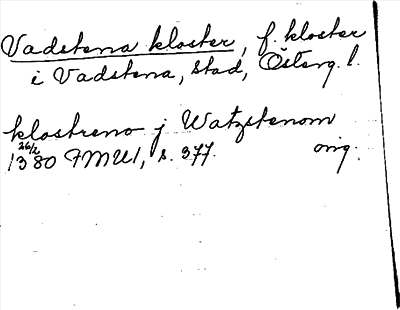 Vadstena kloster, f. kloster
i Vadstena, stad, Österg. l.
klostreno j Watzstenom
26/2 1380 FMU 1, s. 377. orig.